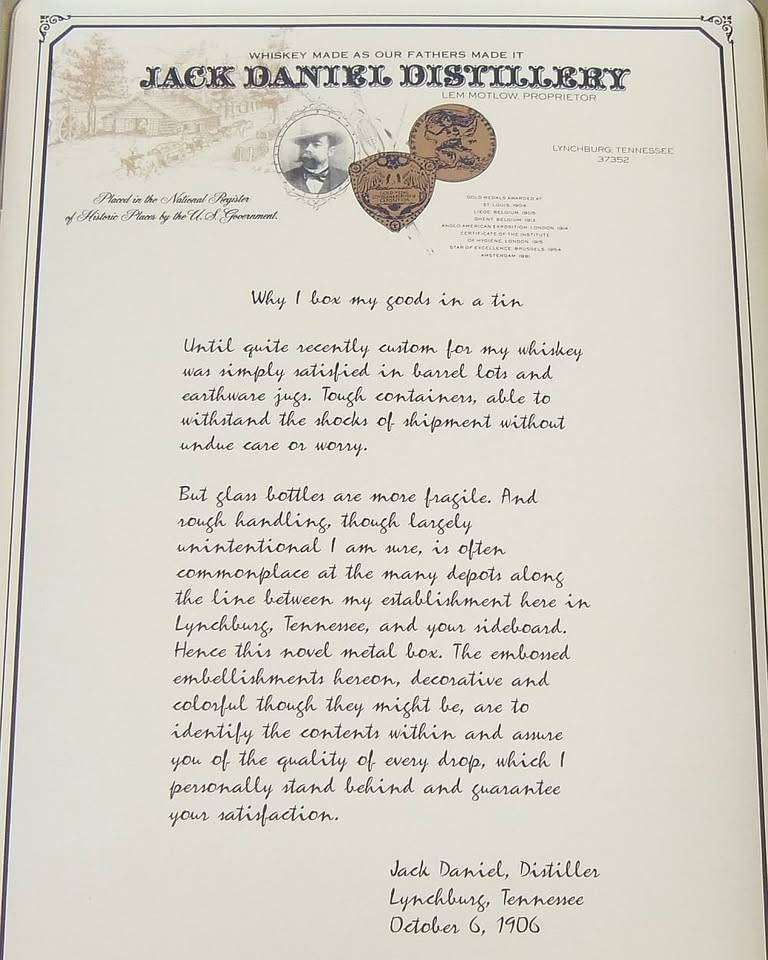 WHISKEY MADE AS OUR FATHERS MADE IT
JACK DANIEL DISTILLERY
LEM MOTLOW, PROPRIETOR
LYNCHBURG, TENNESSEE
37352
Placed in the National Register
of Historic Places by the U.S. Government.
GOLD MEDALS AWARDED AT
ST. LOUIS, 1904
LIEGE, BELGIUM, 1905
GHENT, BELGIUM, 1913
ANGLO-AMERICAN EXPOSITION, LONDON, 1914
CERTIFICATE OF THE INSTITUTE
OF HYGIENE, LONDON, 1915
STAR OF EXCELLENCE, BRUSSELS, 1954
AMSTERDAM 1981
Why I box my goods in a tin
Until quite recently custom for my whiskey
was simply satisfied in barrel lots and
earthware jugs. Tough containers, able to
withstand the shocks of shipment without
undue care or worry.
But glass bottles are more fragile. And
rough handling, though largely
unintentional I am sure, is often
commonplace at the many depots along
the line between my establishment here in
Lynchburg, Tennessee, and your sideboard.
Hence this novel metal box. The embossed
embellishments hereon, decorative and
colorful though they might be, are to
identify the contents within and assure
you of the quality of every drop, which I
personally stand behind and guarantee
your satisfaction.
Jack Daniel, Distiller
Lynchburg, Tennessee
October 6, 1906